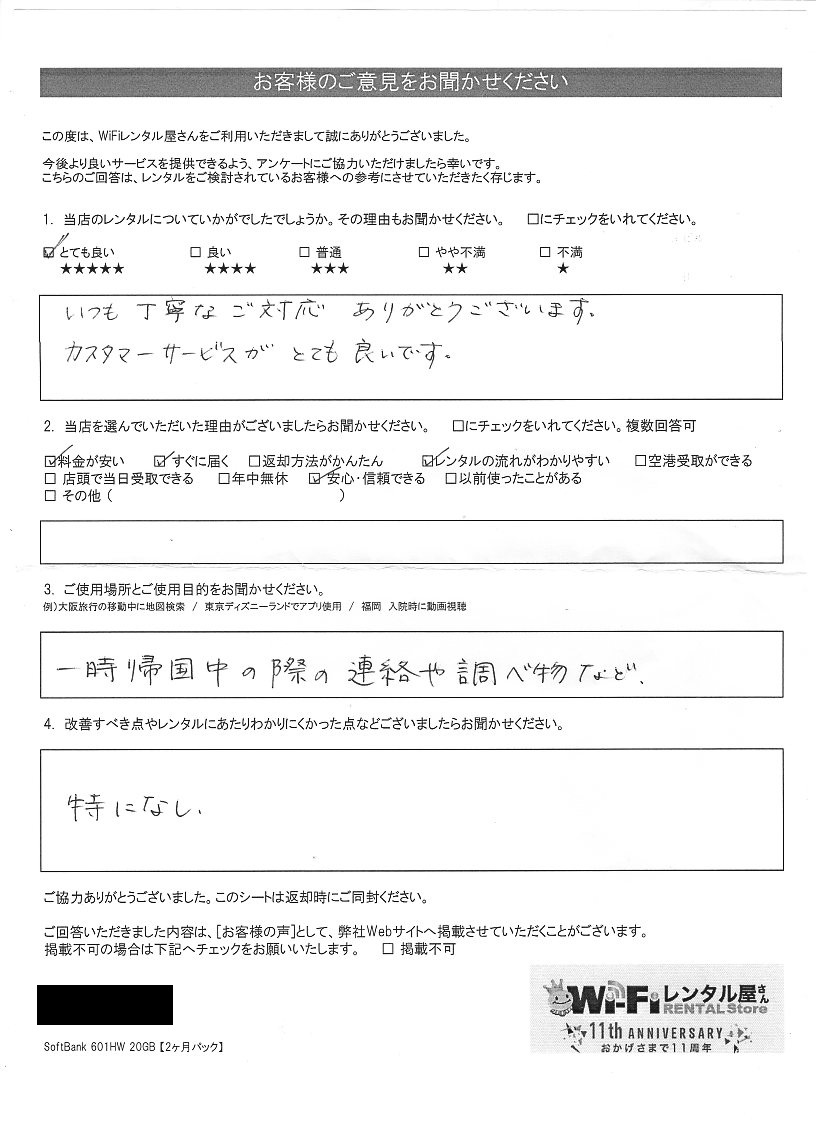 お客様のご意見をお聞かせください
この度は、WiFiレンタル屋さんをご利用いただきまして誠にありがとうございました。
今後より良いサービスを提供できるよう、アンケートにご協力いただけましたら幸いです。
こちらのご回答は、レンタルをご検討されているお客様への参考にさせていただきたく存じます。
1. 当店のレンタルについていかがでしたでしょうか。その理由もお聞かせください。 □にチェックをいれてください。
☑ とても良い □ 良い □ 普通 □ やや不満 □ 不満
★★★★★ ★★★★ ★★★ ★★ ★
いつも 丁寧な ご対応 ありがとうございます。
カスタマーサービスが とても 良いです。
2. 当店を選んでいただいた理由がございましたらお聞かせください。 □にチェックをいれてください。複数回答可
☑料金が安い ☑すぐに届く □返却方法がかんたん ☑レンタルの流れがわかりやすい □空港受取ができる
□ 店頭で当日受取できる □年中無休 ☑安心・信頼できる □以前使ったことがある
□ その他 ( )
3. ご使用場所とご使用目的をお聞かせください。
例)大阪旅行の移動中に地図検索 / 東京ディズニーランドでアプリ使用 / 福岡 入院時に動画視聴
一時帰国中の際の連絡や調べ物など、
4. 改善すべき点やレンタルにあたりわかりにくかった点などございましたらお聞かせください。
特になし、
ご協力ありがとうございました。このシートは返却時にご同封ください。
ご回答いただきました内容は、[お客様の声]として、弊社Webサイトへ掲載させていただくことがございます。
掲載不可の場合は下記へチェックをお願いいたします。 □ 掲載不可
Wi-Fiレンタル屋さん
RENTAL Store
11th ANNIVERSARY
おかげさまで11周年
SoftBank 601HW 20GB【2ヶ月パック】